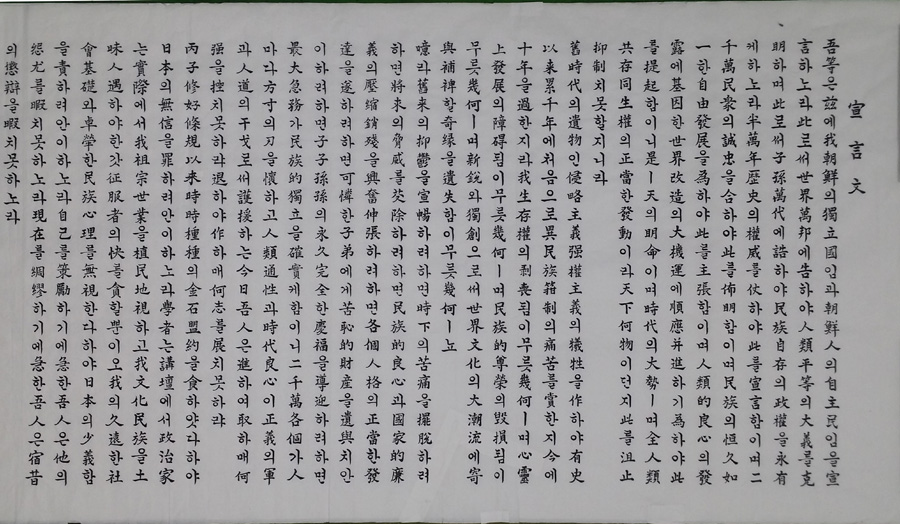 宣言文
吾等은玆에我朝鮮의獨立國임과朝鮮人의自主民임을宣
言하노라此로써世界萬邦에告하야人類平等의大義를克
明하며此로써子孫萬代에誥하야民族自存의政權을永有
케하노라半萬年歷史의權威를仗하야此를宣言함이며二
千萬民衆의誠忠을合하야此를佈明함이며民族의恒久如
一한自由發展을爲하야此를主張함이며人類的良心의發
露에基因한世界改造의大機運에順應幷進하기爲하야此
를提起함이니是ㅣ天의明命이며時代의大勢ㅣ며全人類
共存同生權의正當한發動이라天下何物이던지此를沮止
抑制치못할지니라
舊時代의遺物인侵略主義强權主義의犧牲을作하야有史
以來累千年에처음으로異民族箝制의痛苦를嘗한지今에
十年을過한지라我生存權의剝喪됨이무릇幾何ㅣ며心靈
上發展의障碍됨이무릇幾何ㅣ며民族的尊榮의毁損됨이
무릇幾何ㅣ며新銳와獨創으로써世界文化의大潮流에寄
與補裨할奇緣을遺失함이무릇幾何ㅣ뇨
噫라舊來의抑鬱을宣暢하려하면時下의苦痛을擺脫하려
하면將來의脅威를芟除하려하면民族的良心과國家的廉
義의壓縮銷殘을興奮伸張하려하면各個人格의正當한發
達을遂하려하면可憐한子弟에게苦恥的財産을遺與치안
이하려하면子子孫孫의永久完全한慶福을導迎하려하면
最大急務가民族的獨立을確實케함이니二千萬各個가人
마다方寸의刃을懷하고人類通性과時代良心이正義의軍
과人道의干戈로써護援하는今日吾人은進하여取하매何
强을挫치못하랴退하야作하매何志를展치못하랴
丙子修好條規以來時時種種의金石盟約을食하얏다하야
日本의無信을罪하려안이하노라學者는講壇에서政治家
는實際에서我祖宗世業을植民地視하고我文化民族을土
昧人遇하야한갓征服者의快를貪할뿐이오我의久遠한社
會基礎와卓榮한民族心理를無視한다하야日本의少義함
을責하려안이하노라自己를策勵하기에急한吾人은他의
怨尤를暇치못하노라現在를綢繆하기에急한吾人은宿昔
의懲辯을暇치못하노라